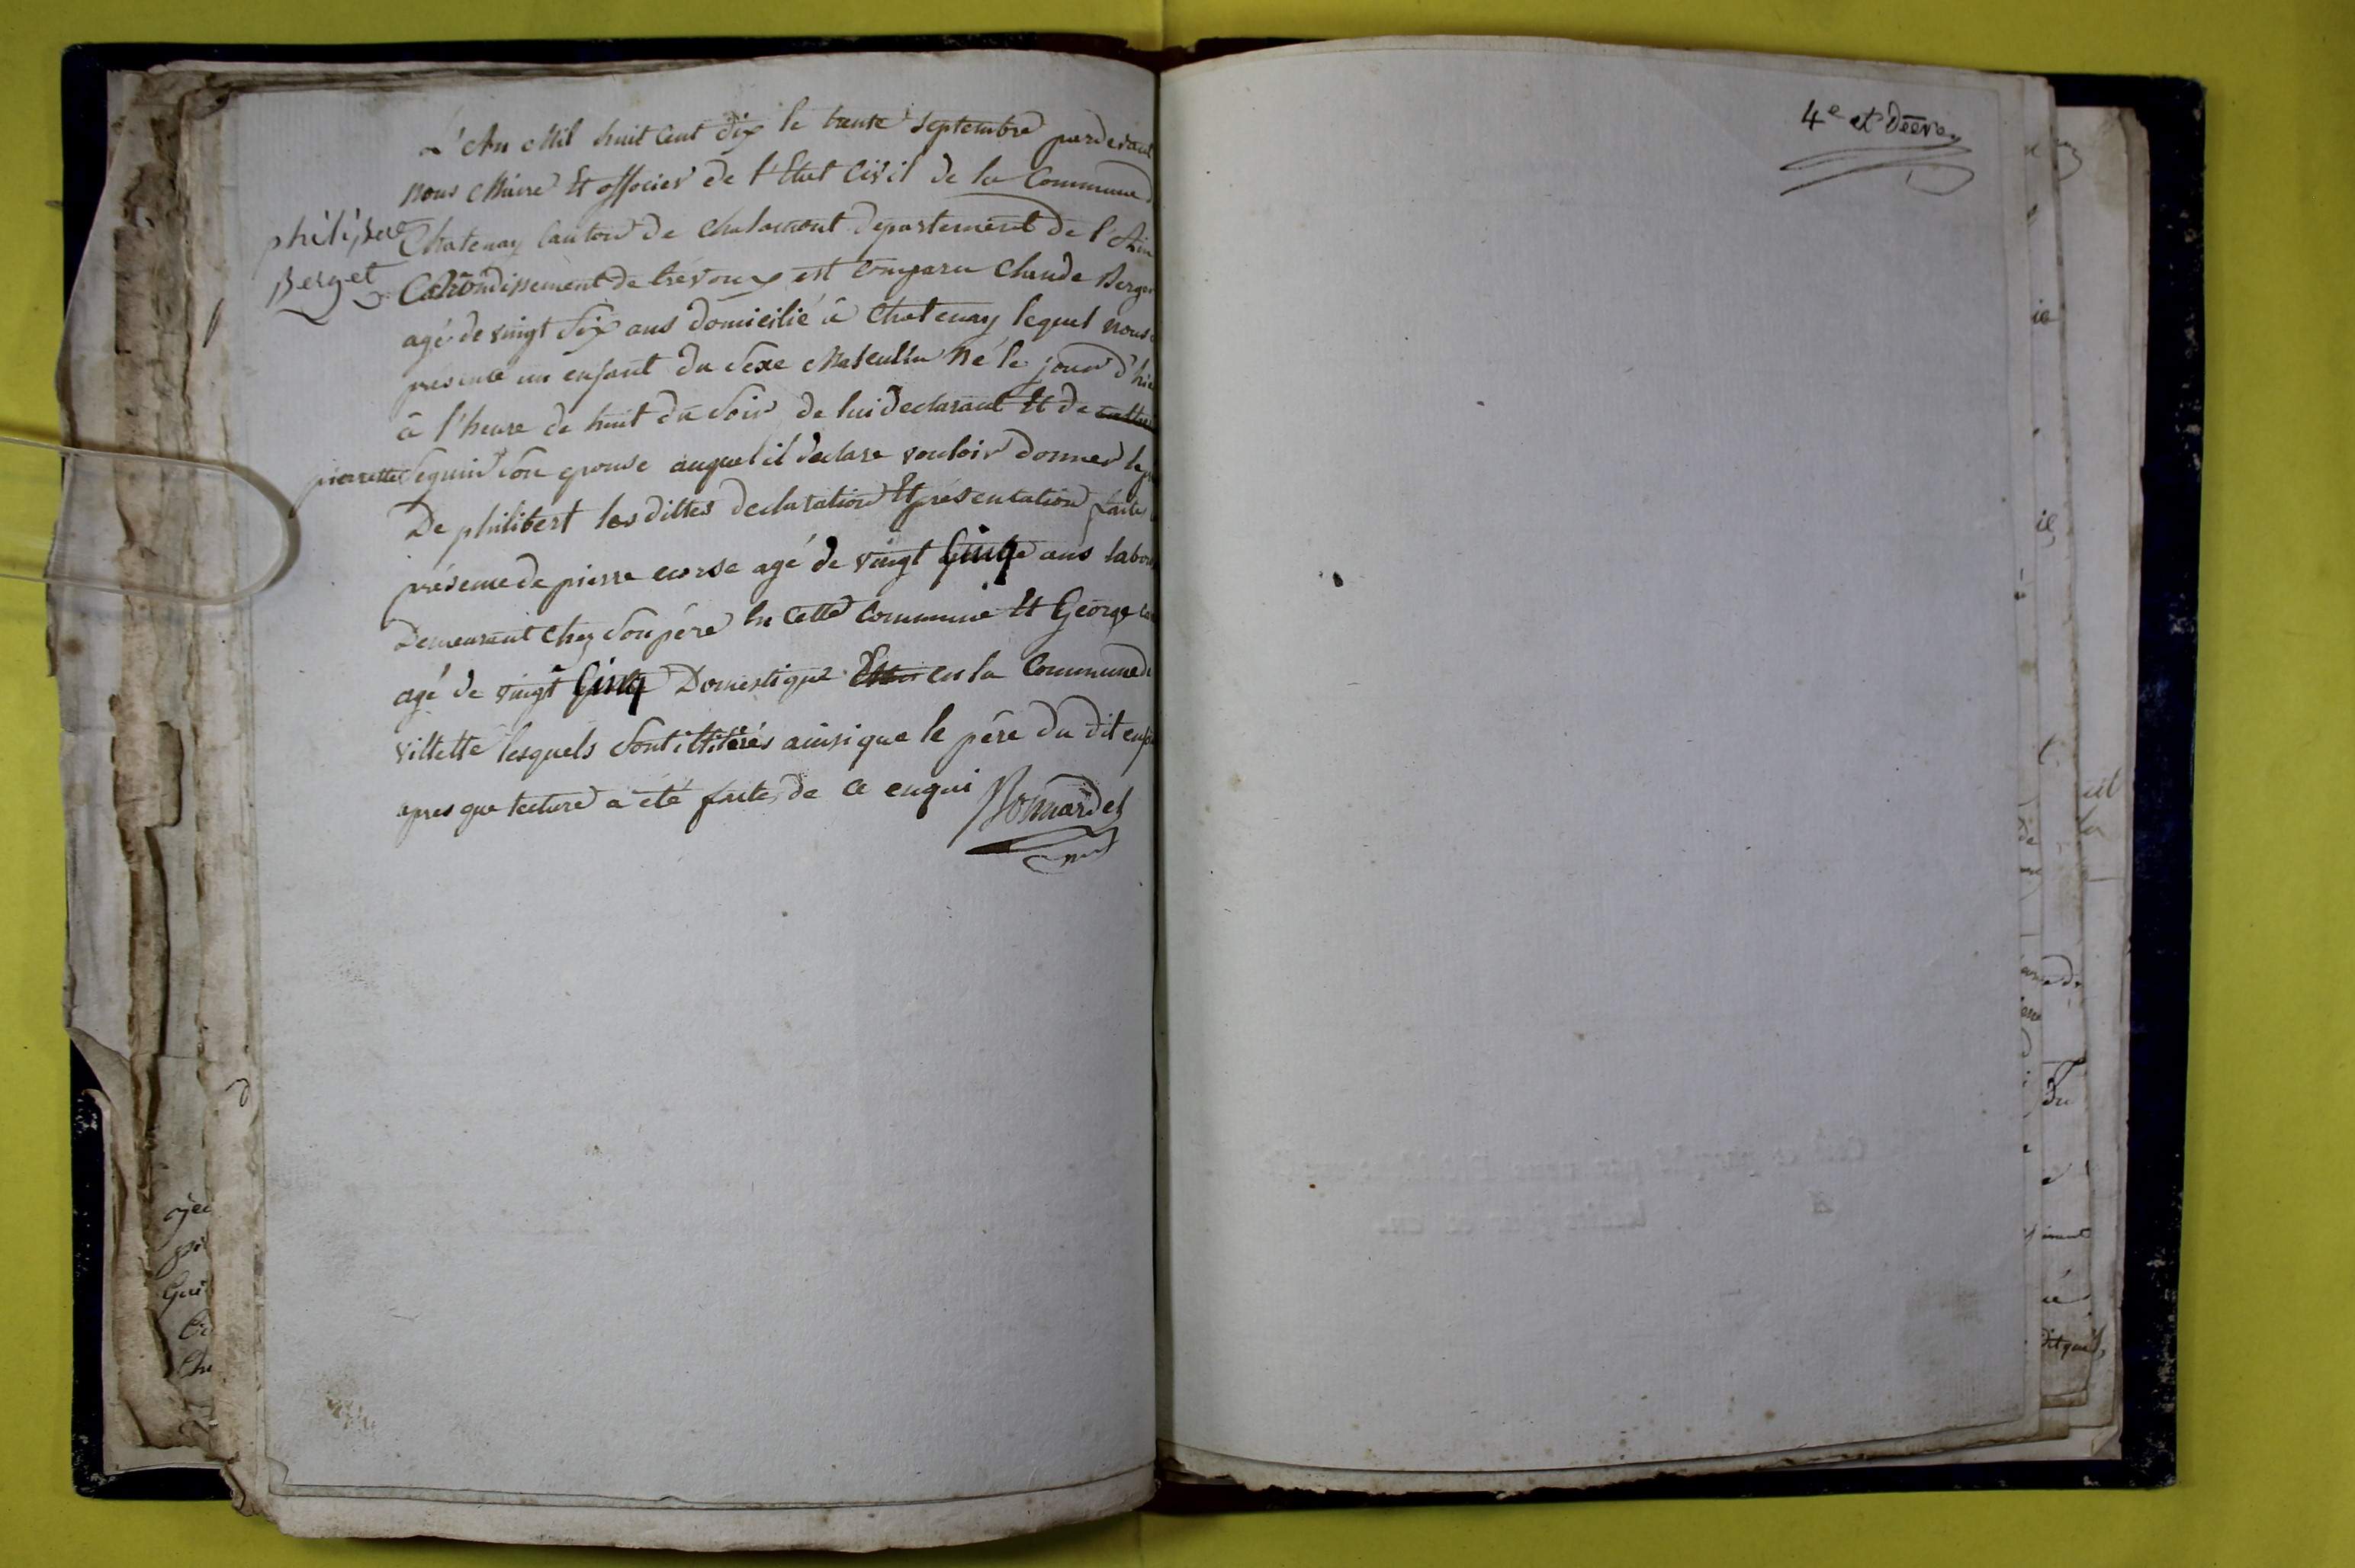 L'An Mil huit Cent dix le trente septembre pardevant
nous Maire Et officier de l'Etat Civil de la Commune
Chatenay Canton de Chalamont departement de l'Ain
arrondissement de trévoux est comparu Claude Berge
agé de vingt Six ans domicilié à Chatenay lequel nous
presenté un enfant du Sexe Masculin Né le jour d'hie
à l'heure de huit du Soir de lui declarant Et de
pierrette Seguin Son epouse auquel il declare vouloir donner le
De philibert les dittes declaration Et présentation faites
présence de pierre corse agé de vingt Cinq ans labou
Demeurant Chez Son père En Cette Commune Et George
agé de vingt Cinq Domestique en la Commune de
villette lesquels Sont illitérés ainsi que le père du dit enf
apres que lecture a été faite de ce enqui
Bonnardel
philiber
Berget
4e et